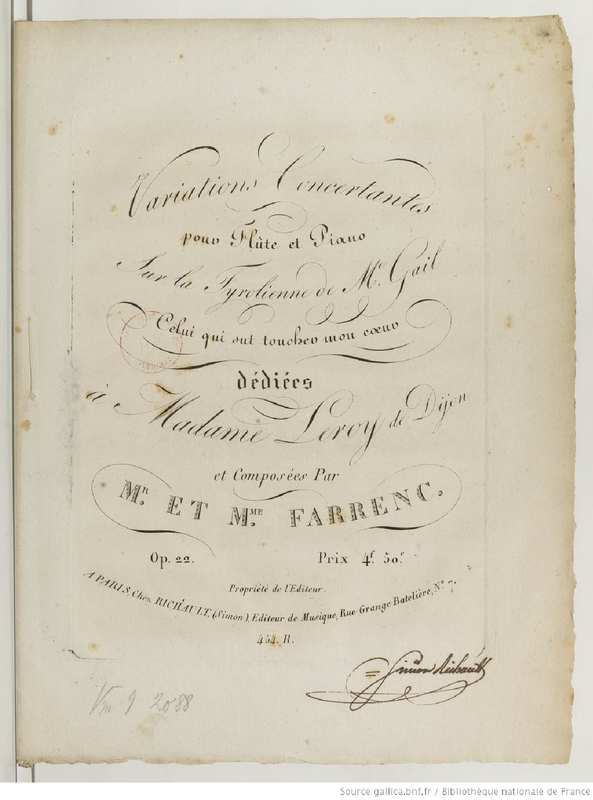 Variations Concertantes
pour Flûte et Piano
Sur la Tyrolienne de Me. Gail
Celui qui sut toucher mon cœur
dédiées
à Madame Leroy de Dijon
et Composées Par
Mr. ET Mme. FARRENC.
Op. 22. Prix 4f. 50c.
Propriété de l'Editeur.
A PARIS, Chez RICHAULT, (Simon), Editeur de Musique, Rue Grange Batelière, No. 7.
454. R.
Simon Richault
Vm 9 2088
Source gallica.bnf.fr / Bibliothèque nationale de France